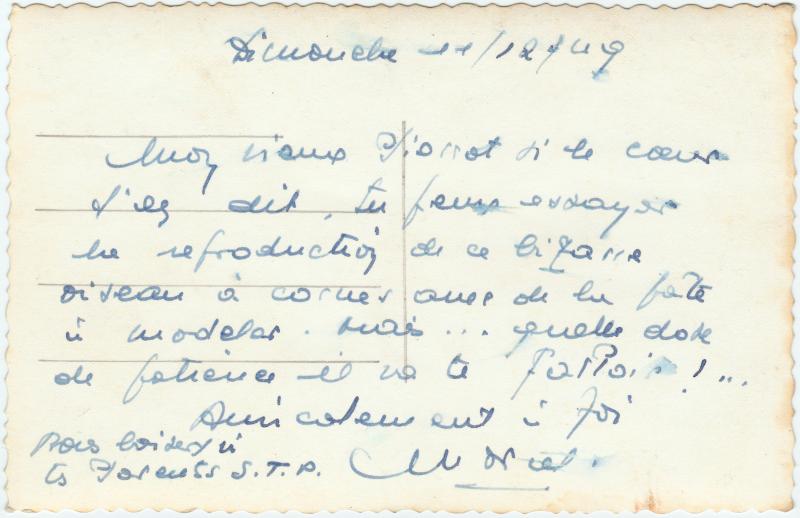 Dimanche 11/12/49
Mon vieux Pierrot si le cœur
t'en dit, tu peux essayer
la reproduction de ce bizarre
oiseau à cornes avec de la pâte
à modeler. Mais... quelle dose
de patience il va te falloir !...
Amicalement à toi
Bons baisers à
ts Parents S.T.P.